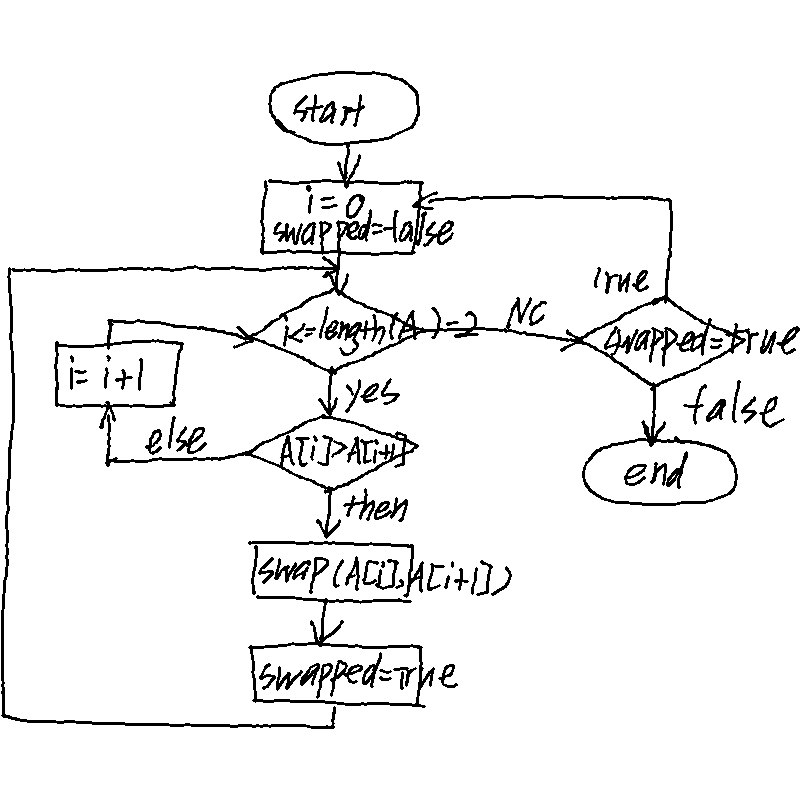 start
i = 0
swapped=false
i<=length(A)-2
NC
true
swapped=true
i= i+1
yes
false
else
A[i]>A[i+1]
end
then
swap(A[i],A[i+1])
swapped=True